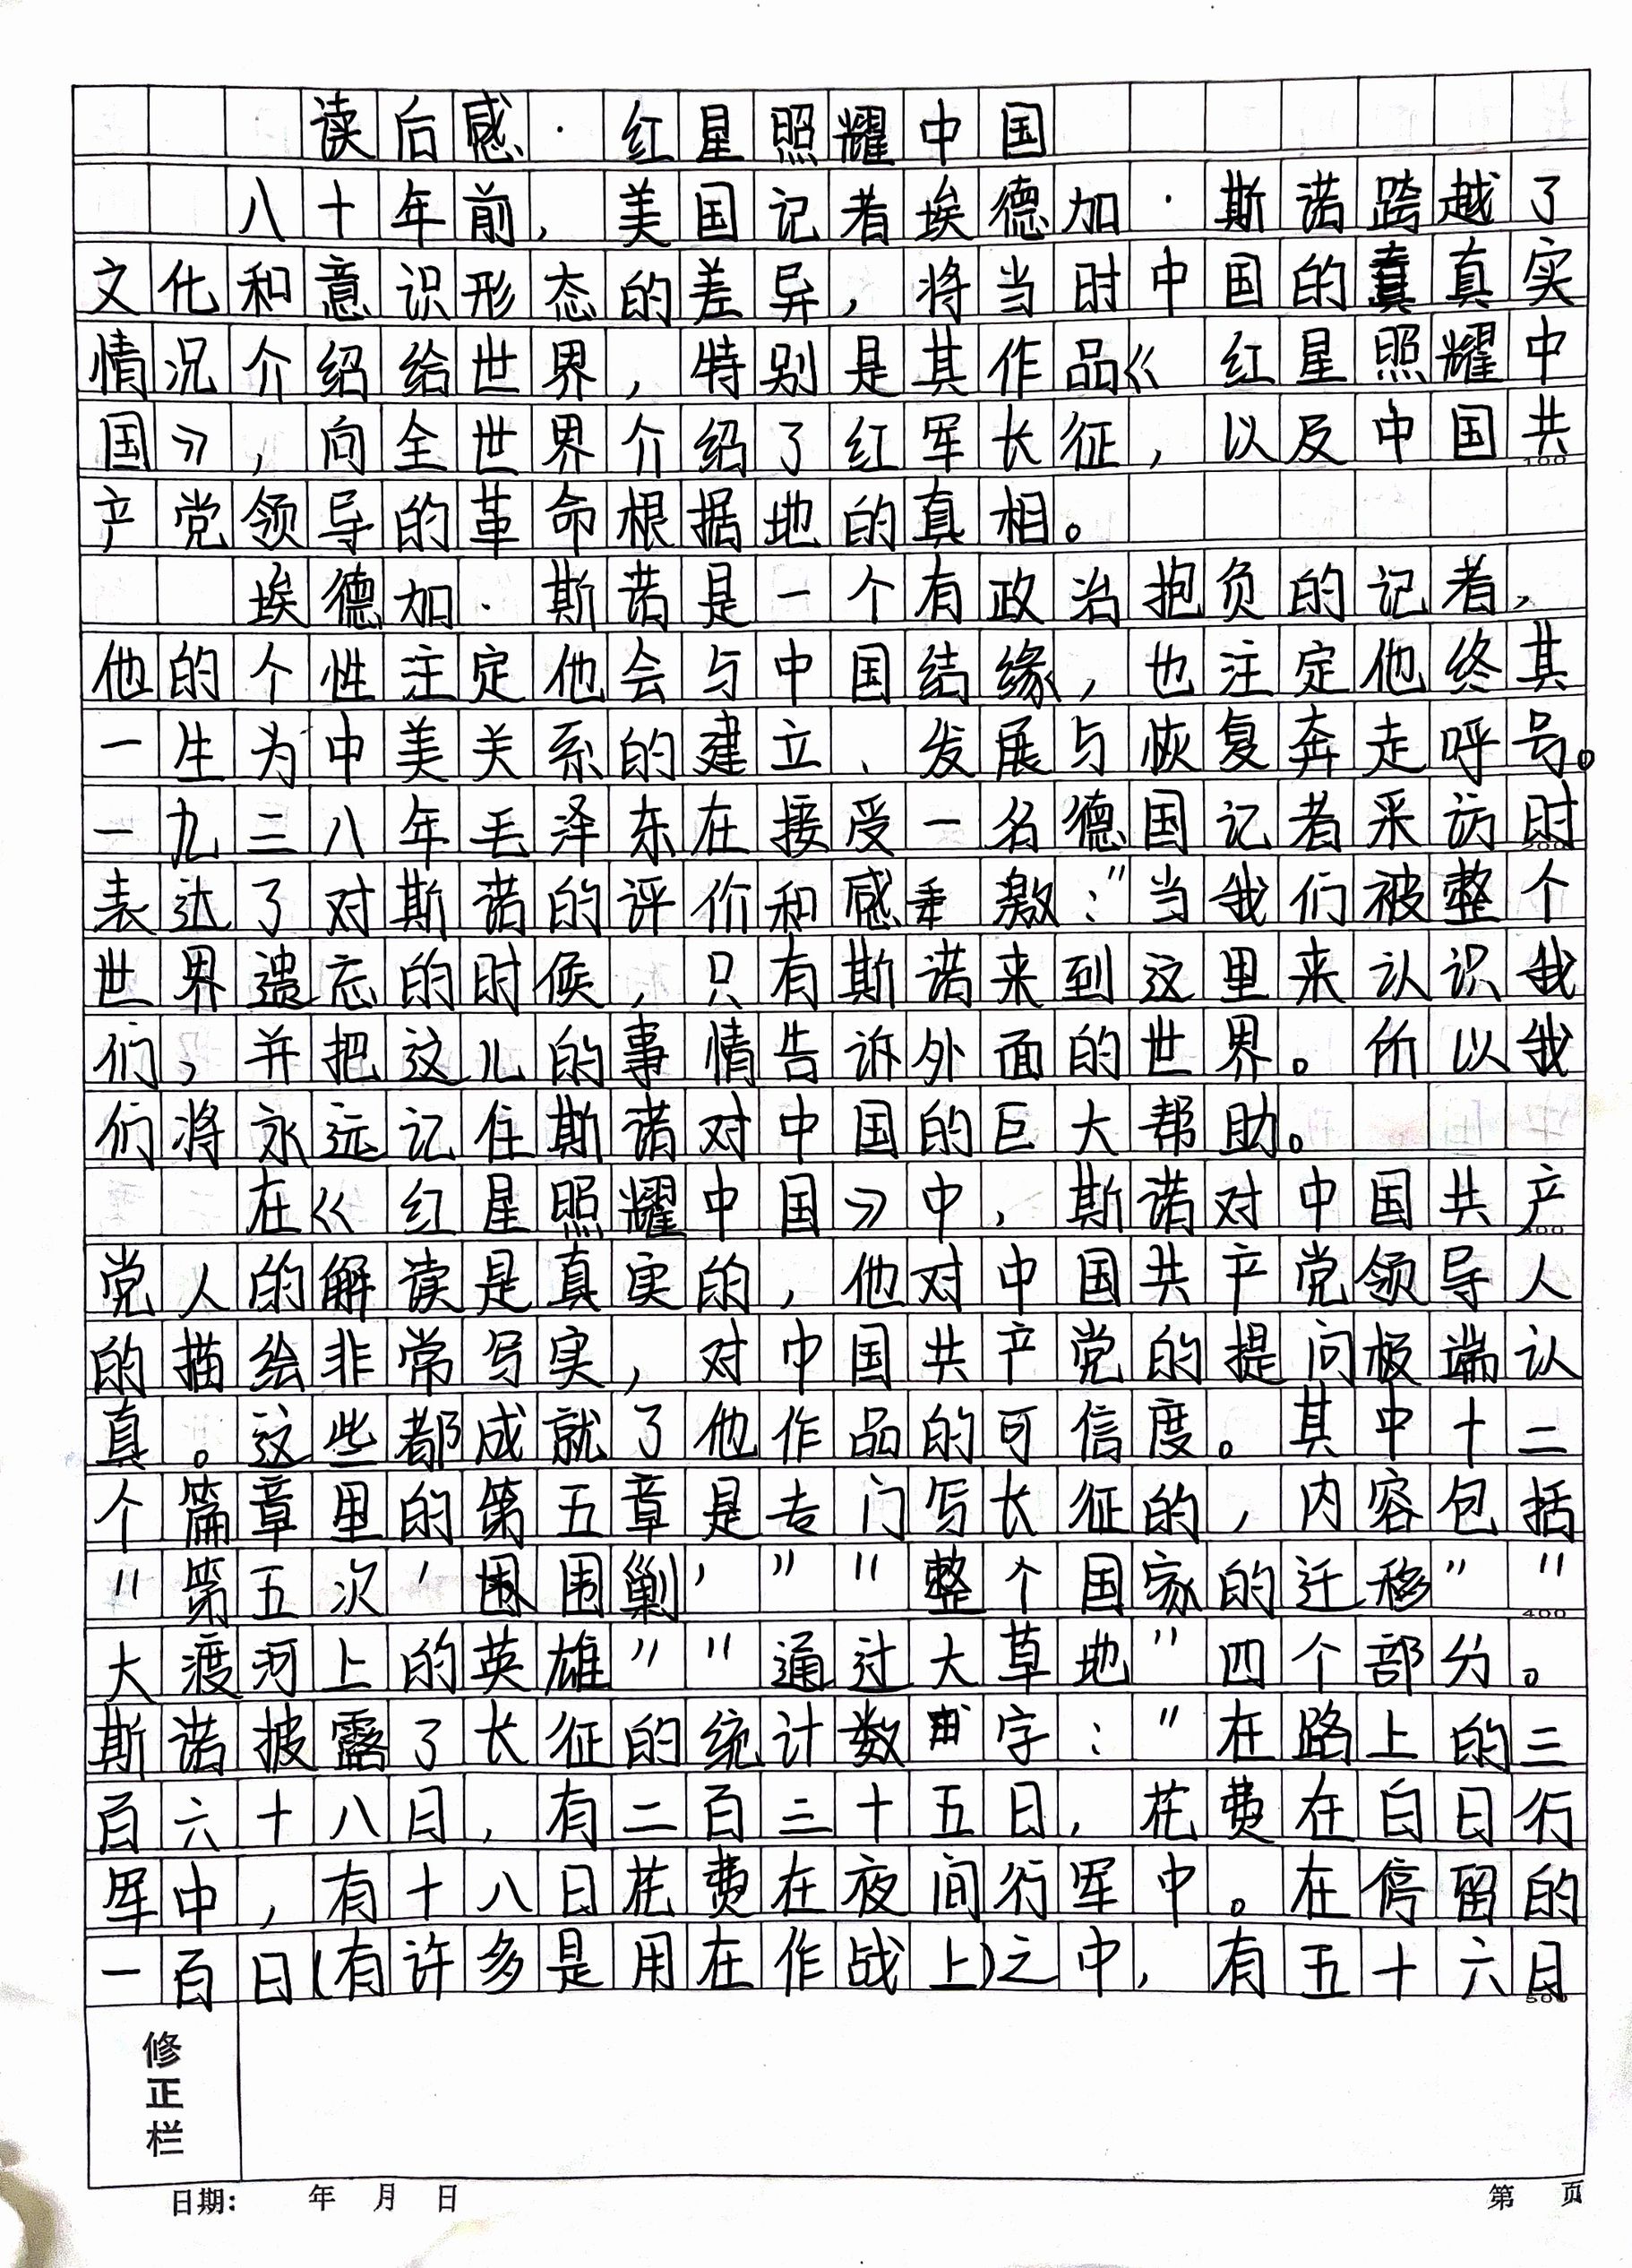 读后感·红星照耀中国
八十年前，美国记者埃德加·斯诺跨越了
文化和意识形态的差异，将当时中国的真实
情况介绍给世界，特别是其作品《红星照耀中
国》，向全世界介绍了红军长征，以及中国共
100
产党领导的革命根据地的真相。
埃德加·斯诺是一个有政治抱负的记者，
他的个性注定他会与中国结缘，也注定他终其
一生为中美关系的建立、发展与恢复奔走呼号。
一九三八年毛泽东在接受一名德国记者采访时
200
表达了对斯诺的评价和感激："当我们被整个
世界遗忘的时候，只有斯诺来到这里来认识我
们，并把这儿的事情告诉外面的世界。所以我
们将永远记住斯诺对中国的巨大帮助。
在《红星照耀中国》中，斯诺对中国共产
300
党人的解读是真实的，他对中国共产党领导人
的描绘非常写实，对中国共产党的提问极端认
真。这些都成就了他作品的可信度。其中十二
个篇章里的第五章是专门写长征的，内容包括
"第五次'围剿'""整个国家的迁移""
400
大渡河上的英雄""通过大草地"四个部分。
斯诺披露了长征的统计数字："在路上的三
百六十八日，有二百三十五日，花费在白日行
军中，有十八日花费在夜间行军中。在停留的
一百日(有许多是用在作战上)之中，有五十六日
500
修正栏
日期： 年 月 日 第 页